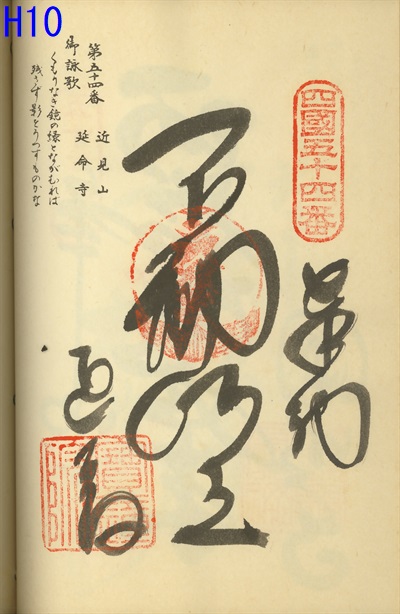 H10
四國五十四番
奉納
不動明王
延命寺
第五十四番
近見山
延命寺
御詠歌
くもりなき鏡の縁とながむれば
残さず影をうつすものかな